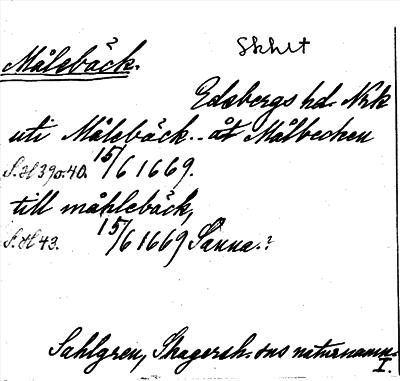 Skht
Målebäck.
Edsbergs hd. Nrk
uti Målebäck.. åt Målbecken
S. 39 o. 40. 15/6 1669.
till måhlebäck,
S. 43. 15/6 1669 Sanna.?
Sahlgren, Skagersh-ens naturnamn.
I.